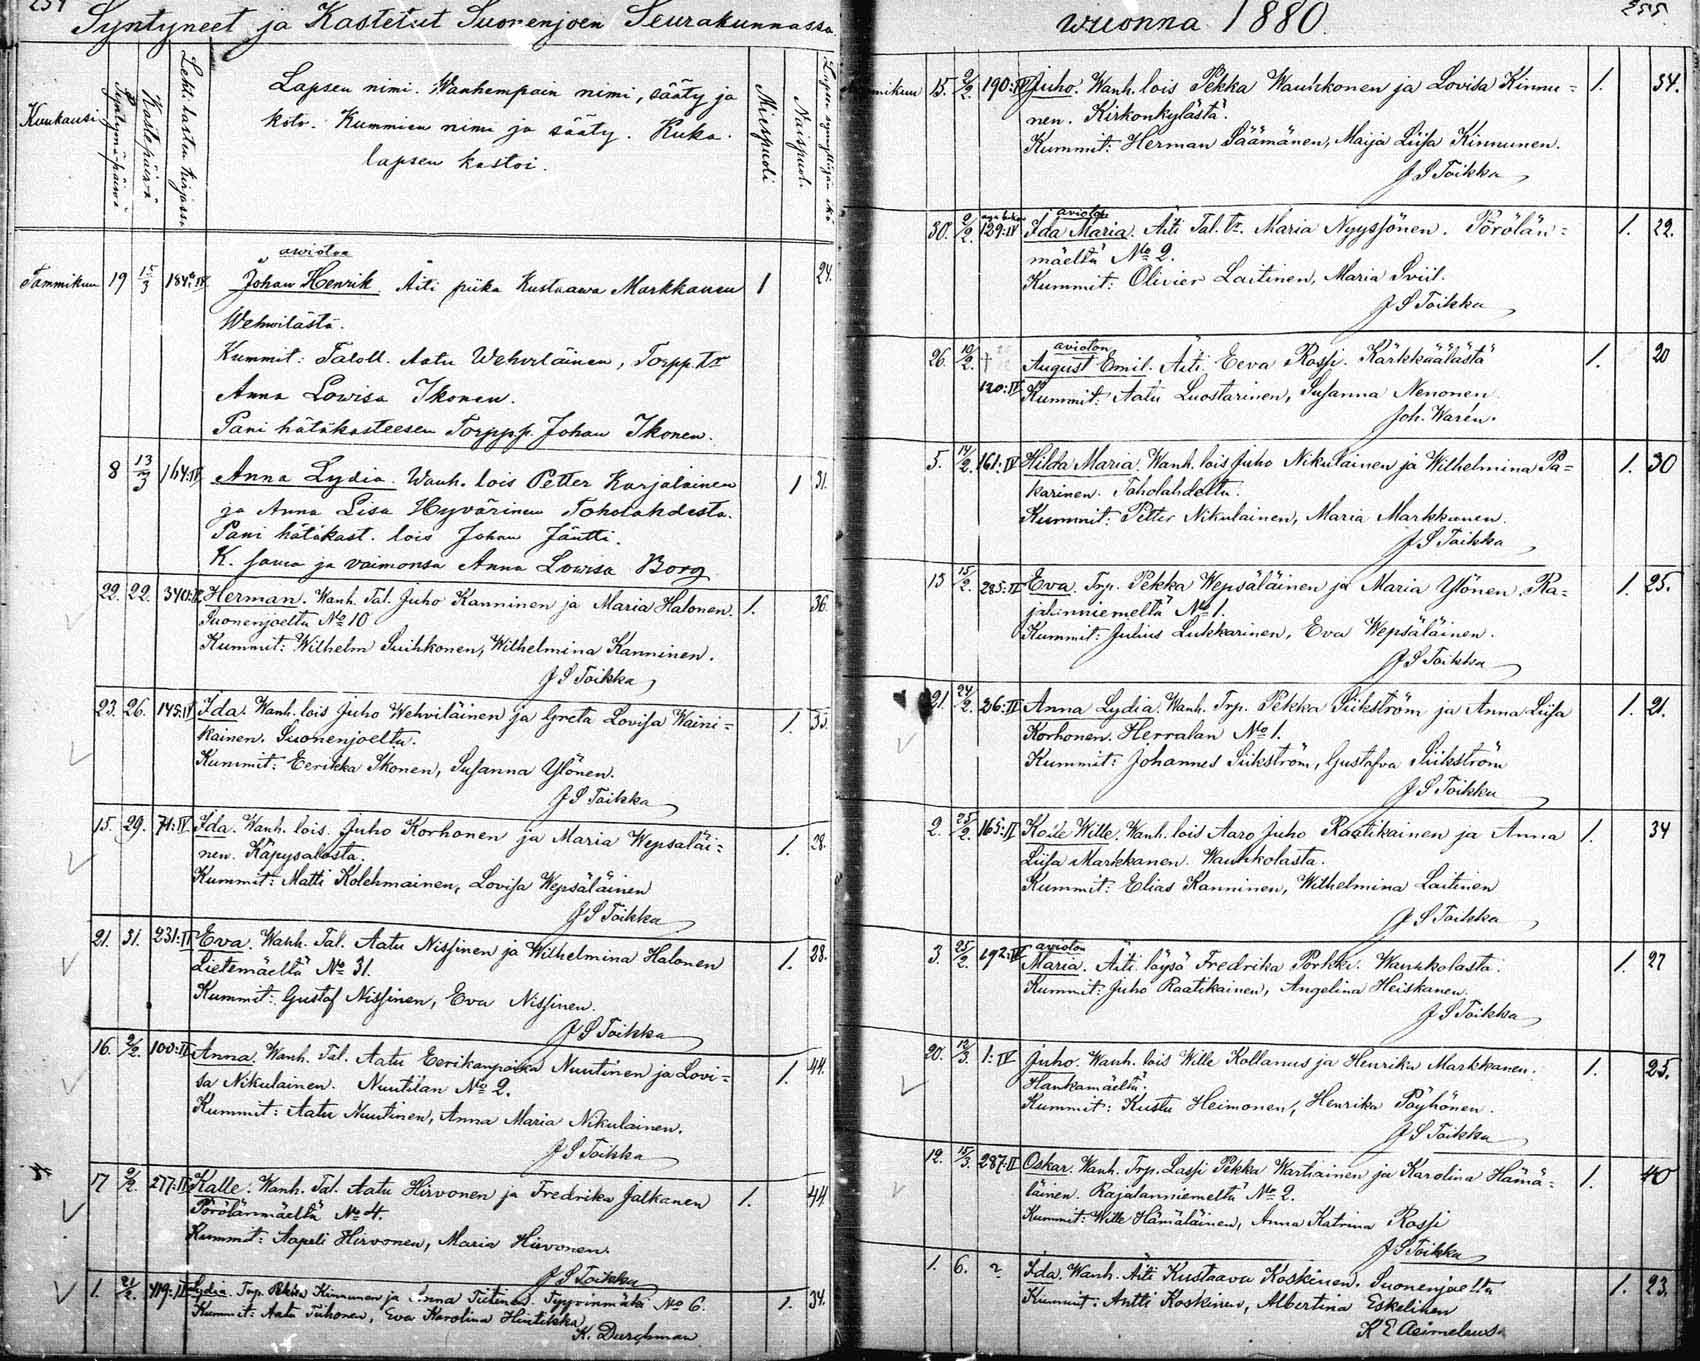 254
Syntyneet ja Kastetut Suonenjoen Seurakunnassa
Kuukausi
Syntymäpäivä
Kastepäivä
Lehti lasten kirjassa
Lapsen nimi. Wanhempain nimi, sääty ja
koto. Kummien nimi ja sääty. Kuka
lapsen kastoi.
Miespuoli
Naispuoli
aviotoa
Tammikuu 19 15/3 184:IV Johan Henrik. Äiti piika Kustaawa Markkanen 1 24.
Wehwilästä.
Kummit: Taloll. Aatu Wehviläinen, Torpp. tr
Anna Lowisa Ikonen.
Pani hätäkasteesen Torpp.p. Johan Ikonen.
8 13/3 164:IV Anna Lydia. Wanh. lois Petter Karjalainen 1 31.
ja Anna Lisa Hyvärinen Toholahdesta.
Pani hätäkast. lois Johan Jäntti.
K. sama ja vaimonsa Anna Lowisa Borg
22. 22. 340:II Herman. Wanh. Tal. Juho Kanninen ja Maria Halonen. 1. 36.
Suonenjoelta No 10
Kummit: Wilhelm Suihkonen, Wilhelmina Kanninen.
J S Toikka
23. 26. 145:IV Ida. Wanh. lois Juho Wehviläinen ja Greta Lovisa Waini= 1. 35.
kainen. Suonenjoelta.
Kummit: Eerikka Ikonen, Susanna Ylönen.
J S Toikka
15. 29. 71:IV Ida. Wanh. lois. Juho Korhonen ja Maria Wepsäläi= 1. 28.
nen. Käpysalosta.
Kummit: Matti Kolehmainen, Lovisa Wepsäläinen
J S Toikka
21. 31. 231:II Eva. Wanh. Tal. Aatu Nissinen ja Wilhelmina Halonen 1. 28.
Lietemäeltä No 31.
Kummit: Gustaf Nissinen, Eva Nissinen.
J S Toikka
16. 2/2. 100:II Anna. Wanh. Tal. Aatu Eerikanpoika Nuutinen ja Lovi= 1. 44.
sa Nikulainen. Nuutilan No 2.
Kummit: Aatu Nuutinen, Anna Maria Nikulainen.
J S Toikka
17 2/2. 277:II Kalle. Wanh. Tal. Aatu Hirvonen ja Fredrika Jalkanen 1. 44.
Pörölänmäeltä No 4.
Kummit: Aapeli Hirvonen, Maria Hirvonen.
J S Toikka
1. 21/2. 419:II Lydia. Trp. Pekka Kinnunen ja Anna Tiitinen. Tyyrinmäki No 6. 1. 34.
Kummit: Aatu Tiihonen, Eva Karolina Hintikka
K. Durchman
wuonna 1880.
255.
Tammikuu 15. 2/2. 190:IV Juho. Wanh. lois Pekka Wauhkonen ja Lovisa Kinnu= 1. 34.
nen. Kirkonkylästä.
Kummit: Herman Säämänen, Maija Liisa Kinnunen.
J S Toikka
avioton
30. 2/2. 129:IV Ida Maria. Äiti Tal. tr. Maria Nyyssönen. Pörölän= 1. 22.
mäeltä No 2.
Kummit: Olivier Laitinen, Maria Sviil.
J S Toikka
avioton
26. 10/2. † August Emil. Äiti Eeva Rossi. Kärkkäälästä 1. 20
120:IV Kummit: Aatu Luostarinen, Susanna Nenonen.
Joh. Warén.
5. 14/2. 161:IV Hilda Maria. Wanh. lois Juho Nikulainen ja Wilhelmina Pa= 1. 30
karinen. Toholahdelta.
Kummit: Petter Nikulainen, Maria Markkanen.
J S Toikka
13 15/2. 285:II Eva. Trp. Pekka Wepsäläinen ja Maria Ylönen Ra= 1. 25.
jalanniemeltä No 1.
Kummit: Julius Lukkarinen, Eva Wepsäläinen.
J S Toikka
21. 24/2. 36:II Anna Lydia. Wanh. Trp. Pekka Siikström ja Anna Liisa 1. 21.
Korhonen. Herralan No 1.
Kummit: Johannes Siikström, Gustafva Siikström
J S Toikka
2. 25/2. 165:II Kalle Wille. Wanh. lois Aaro Juho Raatikainen ja Anna 1. 34
Liisa Markkanen. Wauhkolasta.
Kummit: Elias Kanninen, Wilhelmina Laitinen
J S Toikka
avioton
3. 25/2. 192:IV Maria. Äiti löysä Fredrika Porkka. Wauhkolasta. 1. 27
Kummit: Juho Raatikainen, Angelina Heiskanen.
J S Toikka
20. 12/3. 1:IV Juho. Wanh. lois Wille Kollanus ja Henrika Markkanen. 1. 25.
Hankamäeltä.
Kummit: Kustu Heimonen, Henrika Pöyhönen.
J S Toikka
12. 15/3. 287:II Oskar. Wanh. Trp. Lassi Pekka Wartiainen ja Karolina Hämä= 1. 40
läinen. Rajalanniemeltä No 2.
Kummit: Wille Hämäläinen, Anna Katrina Rossi
J S Toikka
1. 6. ? Ida. Wanh. Äiti Kustaava Koskinen. Suonenjoelta 1. 23.
Kummit: Antti Koskinen, Albertina Eskelinen
K E Aeimelaus